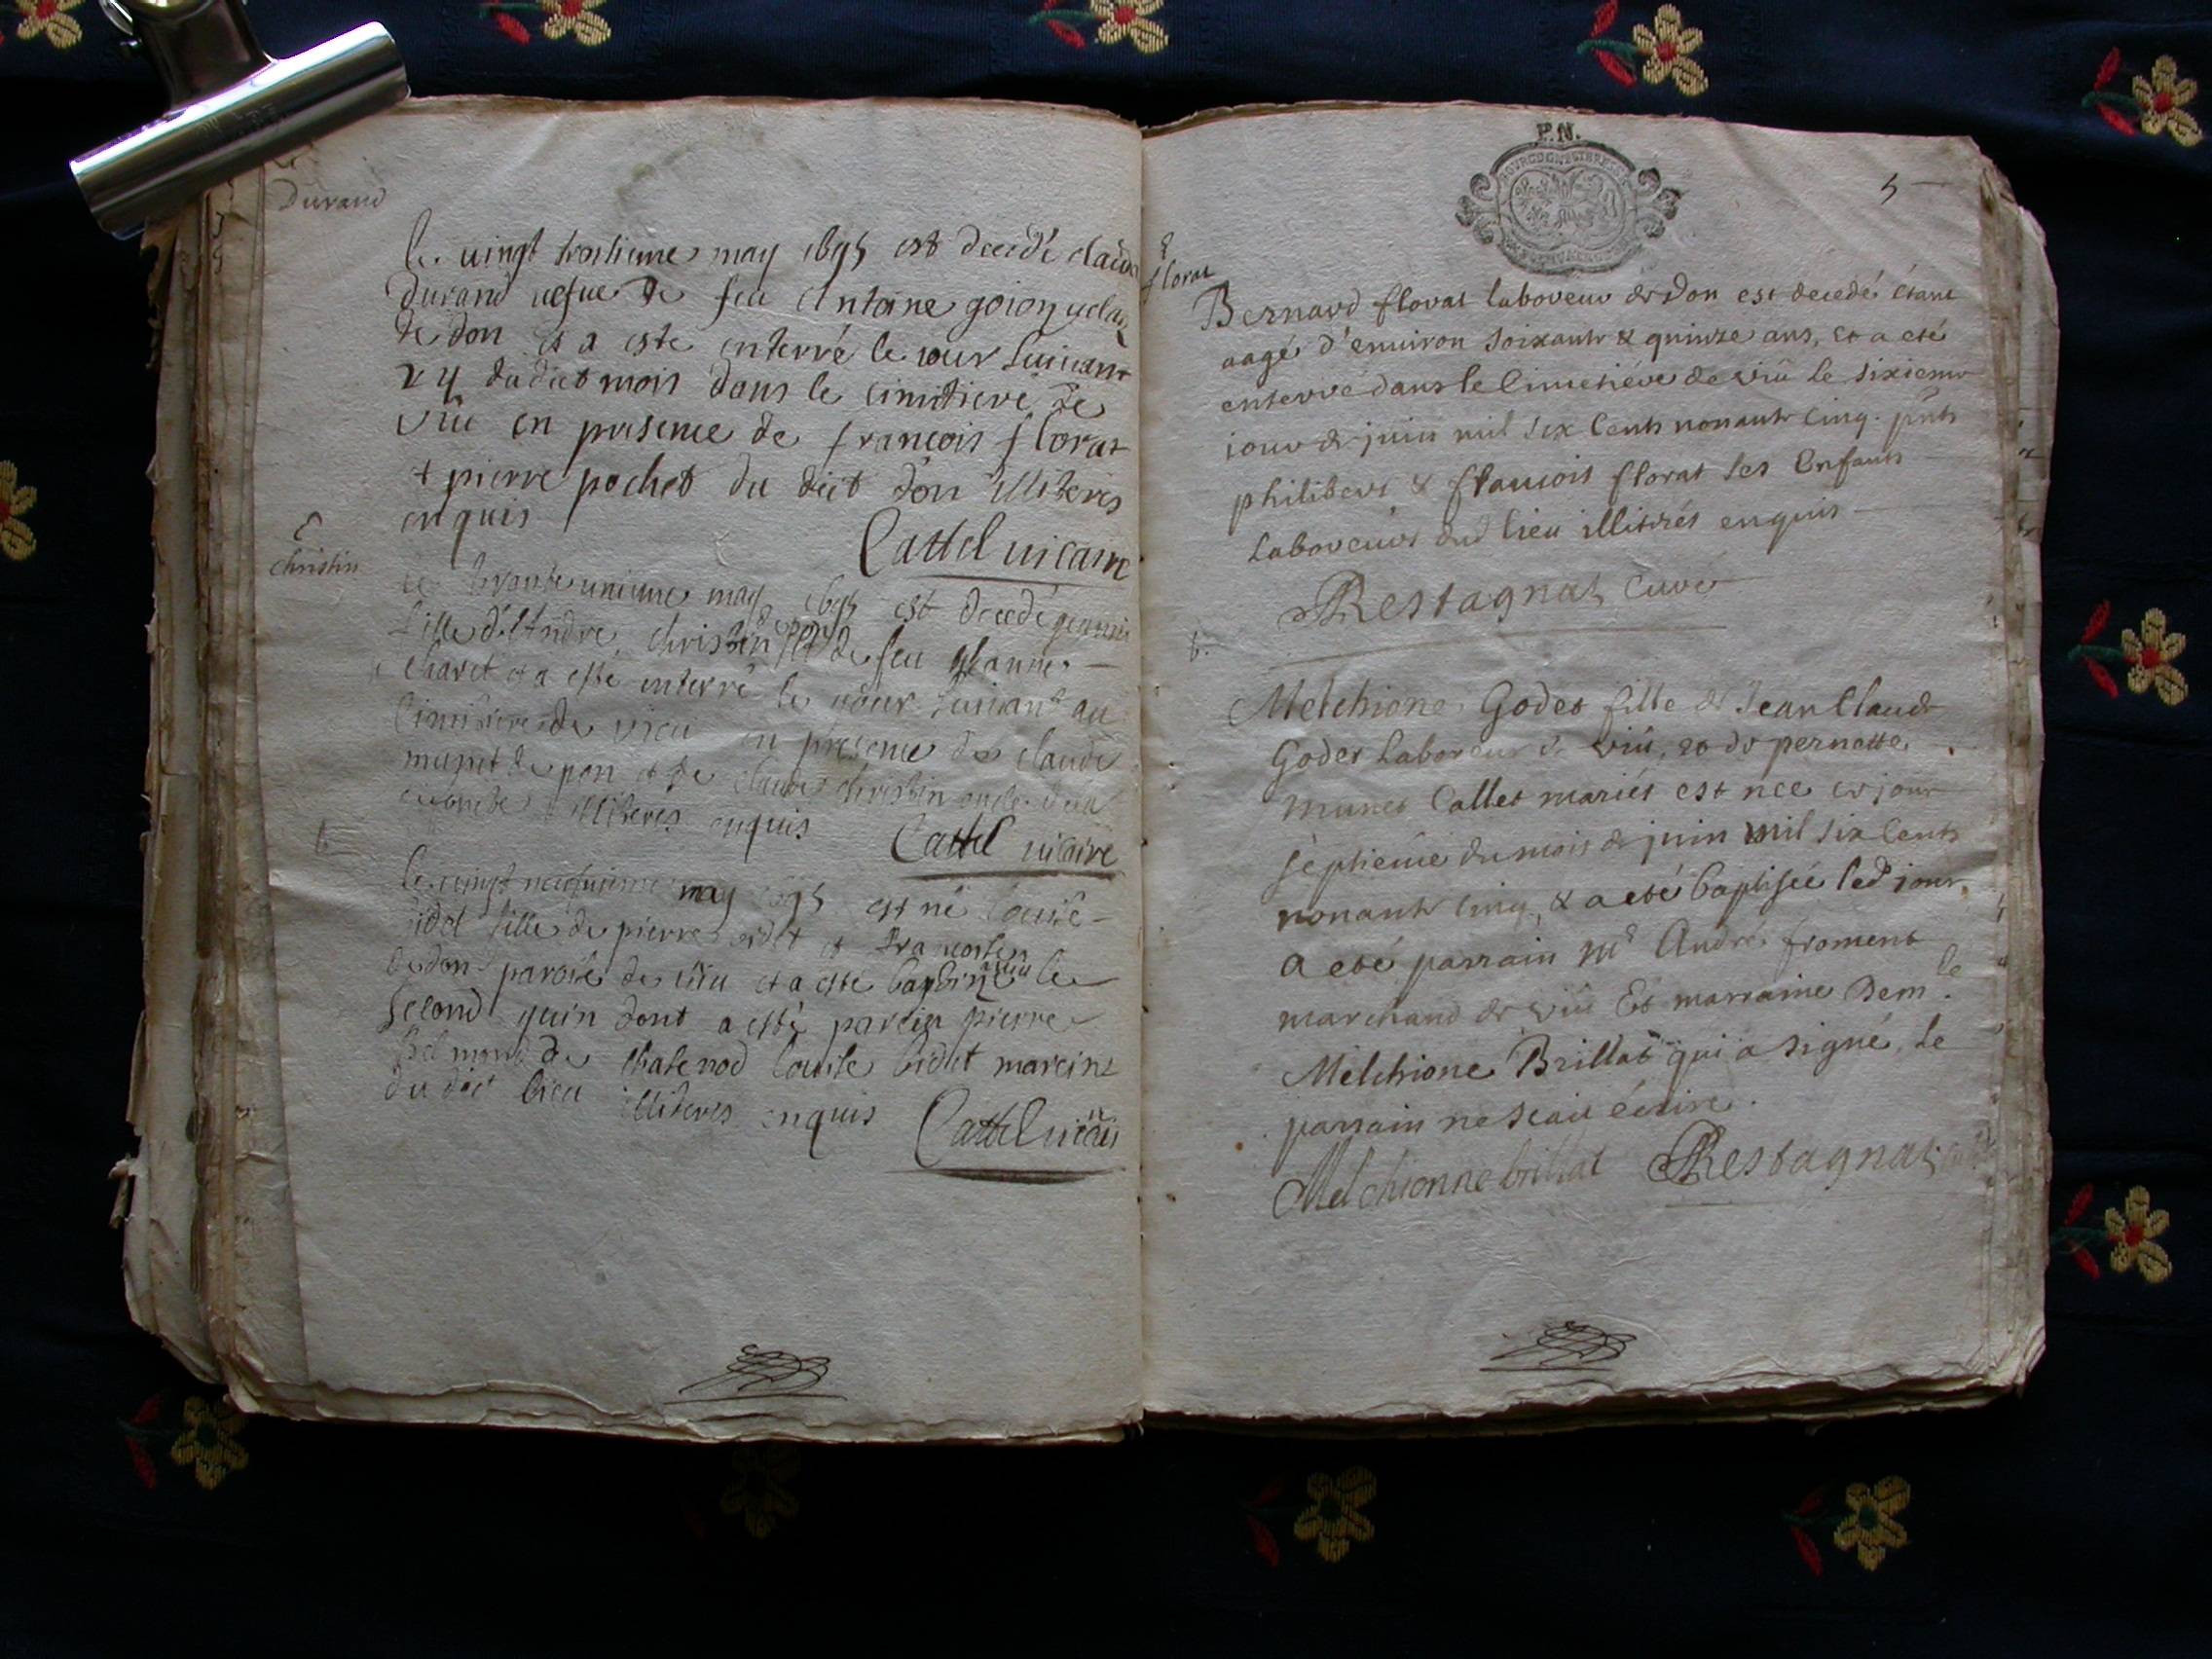 Durand
le vingt troisieme may 1695 est decedé claud
Durand vefue de feu Antoine goion
de don et a esté enterré le iour suivant
24 dudict mois dans le cimitiere de
viu en presence de francois florat
+ pierre pochet du dict don illiteres
enquis
Cattel vicaire
E
christin
le trante unieme may 1695 est decedé
fille d'Andre christin de feu
charet et a esté enterré le iour suivant au
cimitiere de vieu en presence de claude
munet de pon et de claude christin oncle
illiteres enquis
Cattel vicaire
b
le vingt neufuieme may 1695 est né louise
fille de pierre et
de don paroise de viu et a esté le
second juin dont a esté parein pierre
de louise bidet mareine
du dict lieu illiteres enquis
Cattel
P.N.
5
E
florat
Bernard florat laboreur de Don est decedé étant
aagé d'enuiron soixante & quinze ans, et a eté
enterré dans le Cimetiére de viû le sixieme
jour de juin mil six Cents nonante Cinq. pnts
philibert & francois florat ses Enfants
Laboreurs dud lieu illitrés enquis
Restagnat Curé
b.
Melchione Godet fille de Jean Claude
Godet Laboreur de viû, et de pernette
munet Callet mariés est nee ce jour
séptieme du mois de juin mil six Cents
nonante cinq, & a eté baptisée led jour,
a eté parrain mr André froment
marchand de viû Et marraine Dem.le
Melchione Brillat qui a signé, le
parrain ne scait écrire.
Melchionne brillat Restagnat